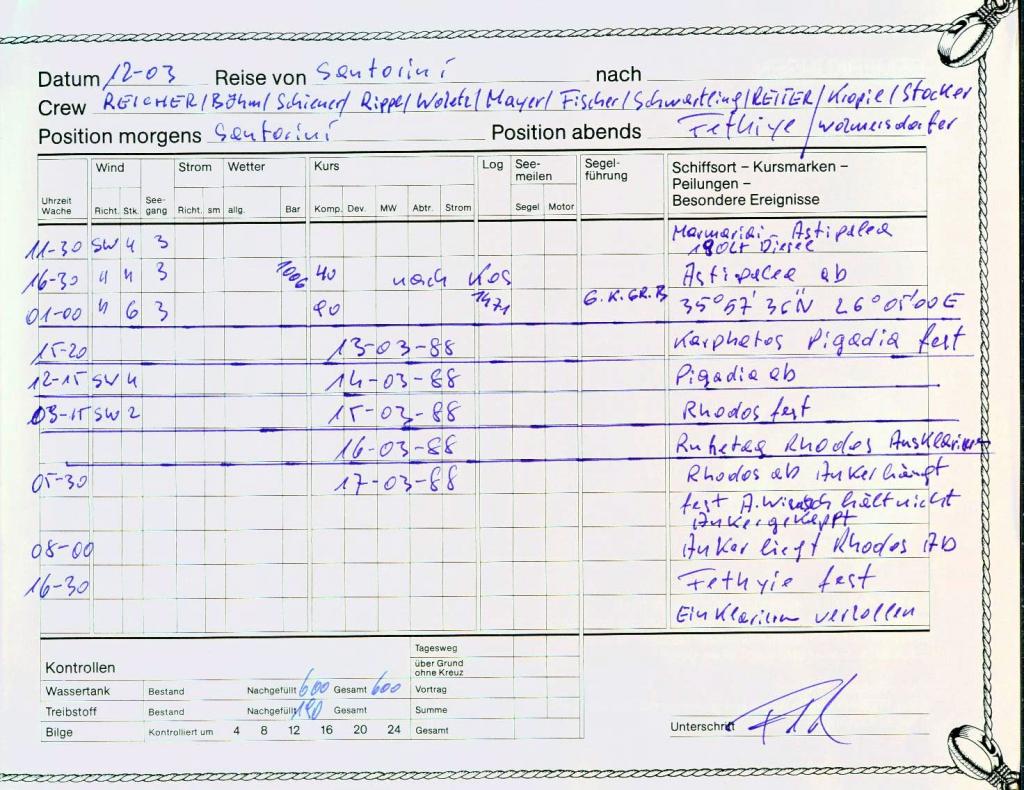 Datum 12-03 Reise von Santorini nach
Crew REICHER/Böhm/Schiener/Rippel/Woletz/Mayer/Fischer/Schwartling/REITER/Kropie/Stocker
Position morgens Santorini Position abends Fethiye / Wolmersdorfer
Wind Strom Wetter Kurs Log See- Segel- Schiffsort – Kursmarken –
meilen führung Peilungen –
Uhrzeit See- Besondere Ereignisse
Wache Richt. Stk. gang Richt. sm allg. Bar Komp. Dev. MW Abtr. Strom Segel Motor
11-30 SW 4 3 Marmarici - Astipalea
190Lt Diesel
16-30 4 4 3 1006 40 nach Kos Astipalea ab
01-00 4 6 3 90 1471 G.K.GR.B 35°57'36"N 26°05'00E
15-20 13-03-88 Karphatos Pigadia fest
12-15 SW 4 14-03-88 Pigadia ab
03-15 SW 2 15-03-88 Rhodos fest
16-03-88 Ruhetag Rhodos Ausklarieren
05-30 17-03-88 Rhodos ab Anker hängt
fest A.Winsch hält nicht
Anker gekappt
08-00 Anker liegt Rhodos AD
16-30 Fethyie fest
Einklarieren verzollen
Kontrollen Tagesweg
über Grund
ohne Kreuz
Wassertank Bestand Nachgefüllt 600 Gesamt 600 Vortrag
Treibstoff Bestand Nachgefüllt 190 Gesamt Summe
Bilge Kontrolliert um 4 8 12 16 20 24 Gesamt
Unterschrift